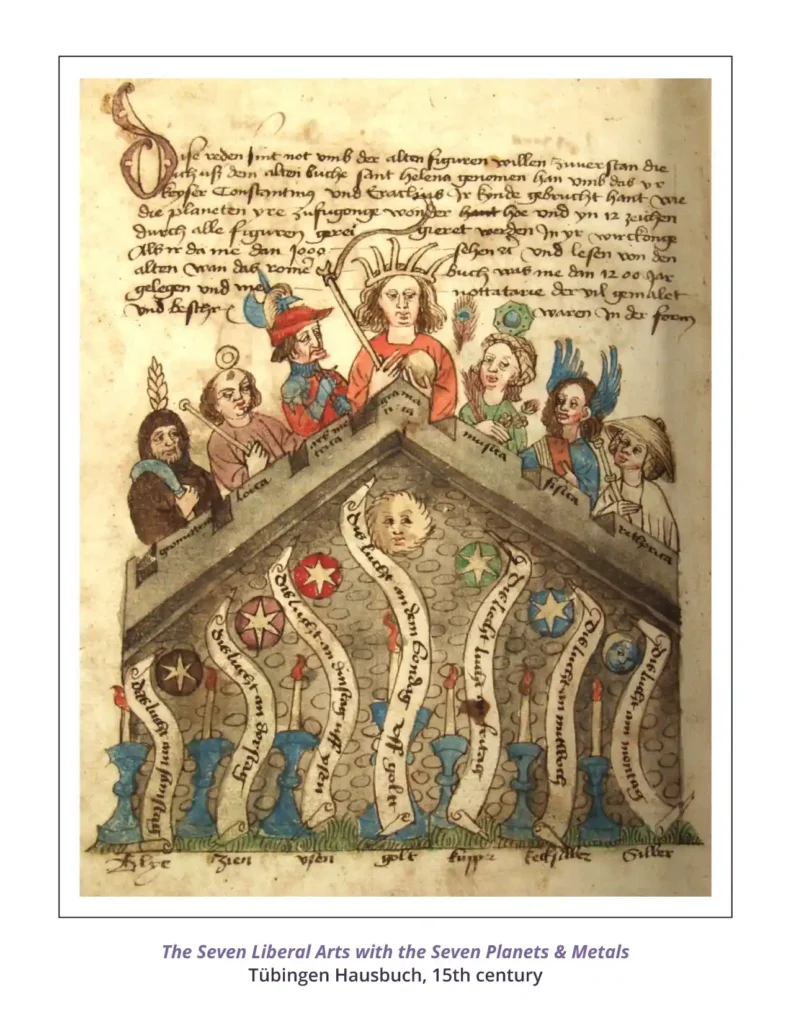 Dise reden sint not umb der alten figuren willen zuuerstan die
ich uß dem alten buche sant helena genomen han umb das yr
keyser Constantinus und Eraclius Ir kynde gebrucht hant wie
die planeten yre zufugonge wonder hant hoe und yn 12 zeichen
durch alle figuren gerei gieret werden In yr wirckonge
Als ir da me dan 1000 sehen und lesen von den
alten wan das buch was me dan 1200 Jar
gelegen und me der vil gemalet
und waren In der form
grama
tica
loica
musica
fisica
rethorica
Dis lucht an samstag
Dis lucht an dorstag
Dis lucht an dinstag uff ysen
Dis lucht an dem Sondag uff golt
Dis licht lucht
Dis lucht an mittwuch
Dis lucht am montag
Blye zien ysen golt kupper kecksilber Silber
The Seven Liberal Arts with the Seven Planets & Metals
Tübingen Hausbuch, 15th century